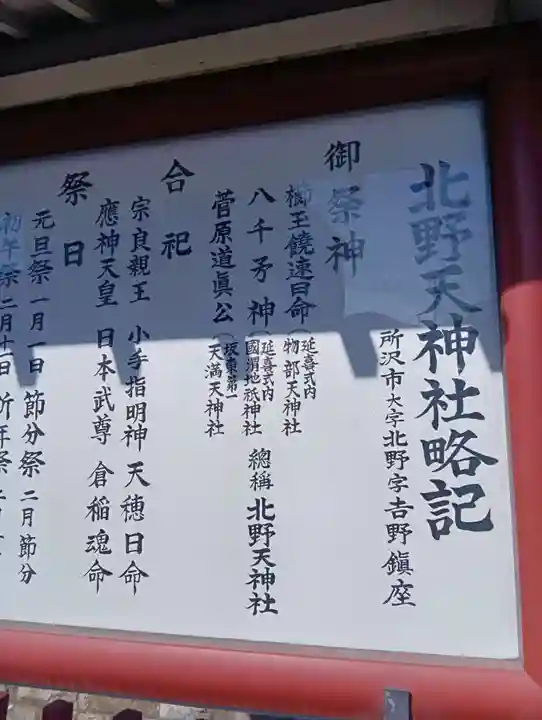 北野天神社略記
所沢市大字北野字吉野鎭座
御祭神
櫛玉饒速日命（延喜式内 物部天神社
八千矛神（延喜式内 國渭地祇神社
總稱 北野天神社
菅原道眞公（坂東第一 天満天神社
合祀
宗良親王 小手指明神 天穂日命
應神天皇 日本武尊 倉稲魂命
祭日
元旦祭一月一日 節分祭二月節分
初午祭二月十一日 祈年祭二月